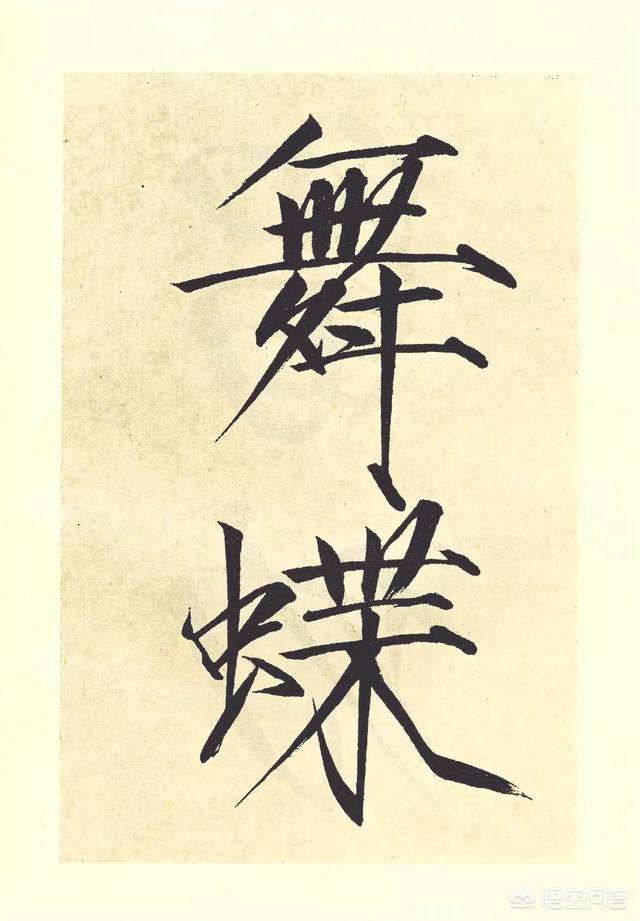 舞
蝶
悟空问答